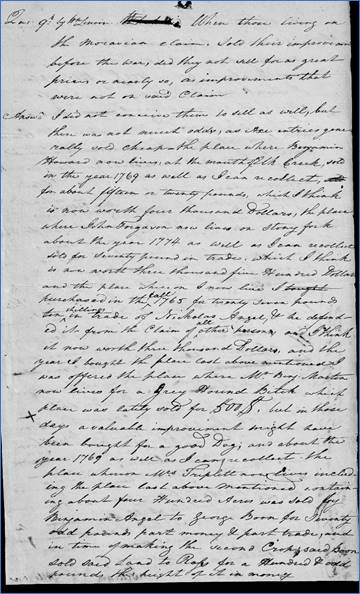 Ques. 9th by Wm Lenoir When those living on
the Moravian claim sold their improvements
before the war, did they not sell for as great
prices or nearly so, as improvements that
were not on said Claim
Answer I did not conceive them to sell as well, but
there was not much odds, as the entries gene
rally sold cheap the place where Benjamin
Howard now lives, at the mouth of Elk Creek, sold
in the year 1769 as well as I can recollect,
for about fifteen or twenty pounds, which I think
is now worth four thousand Dollars, the place
where John Ferguson now lives on Stony fork
about the year 1774 as well as I can recollect
sold for Seventy pound in trade. which I think
is now worth three thousand five Hundred Dollars
and the place whereon I now live I bought
purchased in the fall 1765 for twenty seven pound
ten shillings in trade of Nicholas Angel, & he defend-
ed it from the Claim of all other persons, and I think
it now worth three thousand Dollars, and the
year I bought the place last above mentioned I
was offered the place where Mr. Benj Martin
now lives for a Grey Hound Bitch which
place was lately sold for 500$. but in those
days a valuable improvement might have
been bought for a good Dog; and about the
year 1769 as well as I can recollect the
place whereon Mrs Triplett now lives includ
ing the place last above mentioned contain
ing about four Hundred Acres was sold by
Benjamin Angel to George Boon for Twenty
odd pounds part money & part trade, and
in time of making the second Crop, said Boon
sold said Land to Ross for a Hundred & odd
pounds the height of it in money